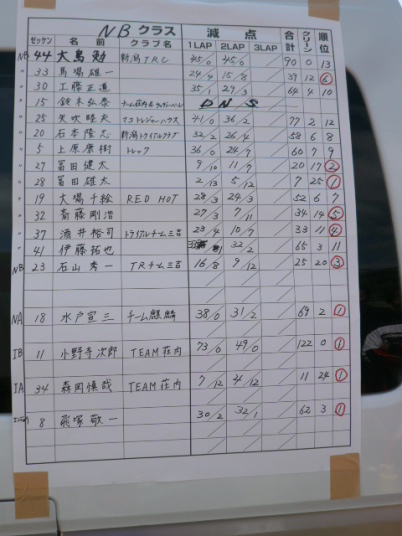 NBクラス
減点
ゼッケン 名前 クラブ名 1LAP 2LAP 3LAP 合計 クリーン 順位
NB 44 大島勉 新潟TRC 45/0 45/0 90 0 13
〃 33 馬場雄一 24/4 15/8 39 12 6
〃 30 工藤正直 35/1 29/3 64 4 10
〃 15 鈴木弘泰 DNS
〃 25 矢吹晴夫 マットレジャーハウス 41/0 36/2 77 2 12
〃 20 石本隆志 新潟トライアルクラブ 32/2 26/4 58 6 8
〃 5 上原康樹 トレック 36/0 24/7 60 7 9
〃 27 冨田健太 9/10 11/7 20 17 2
〃 28 冨田雄太 2/13 5/12 7 25 1
〃 19 大場千絵 RED HOT 28/3 24/3 52 6 7
〃 32 斎藤剛浩 27/3 7/11 34 14 5
〃 37 酒井裕司 トライアルチーム三吉 23/4 10/7 33 11 4
〃 41 伊藤拓也 32/2 65 3 11
NB 23 石山秀一 TRチーム三吉 16/8 9/12 25 20 3
NA 18 水戸宣三 チーム麒麟 38/0 31/2 69 2 1
IB 11 小野寺次郎 TEAM荘内 73/0 49/0 122 0 1
IA 34 森岡慎哉 TEAM荘内 7/12 4/12 11 24 1
8 飛塚敬一 30/2 32/1 62 3 1